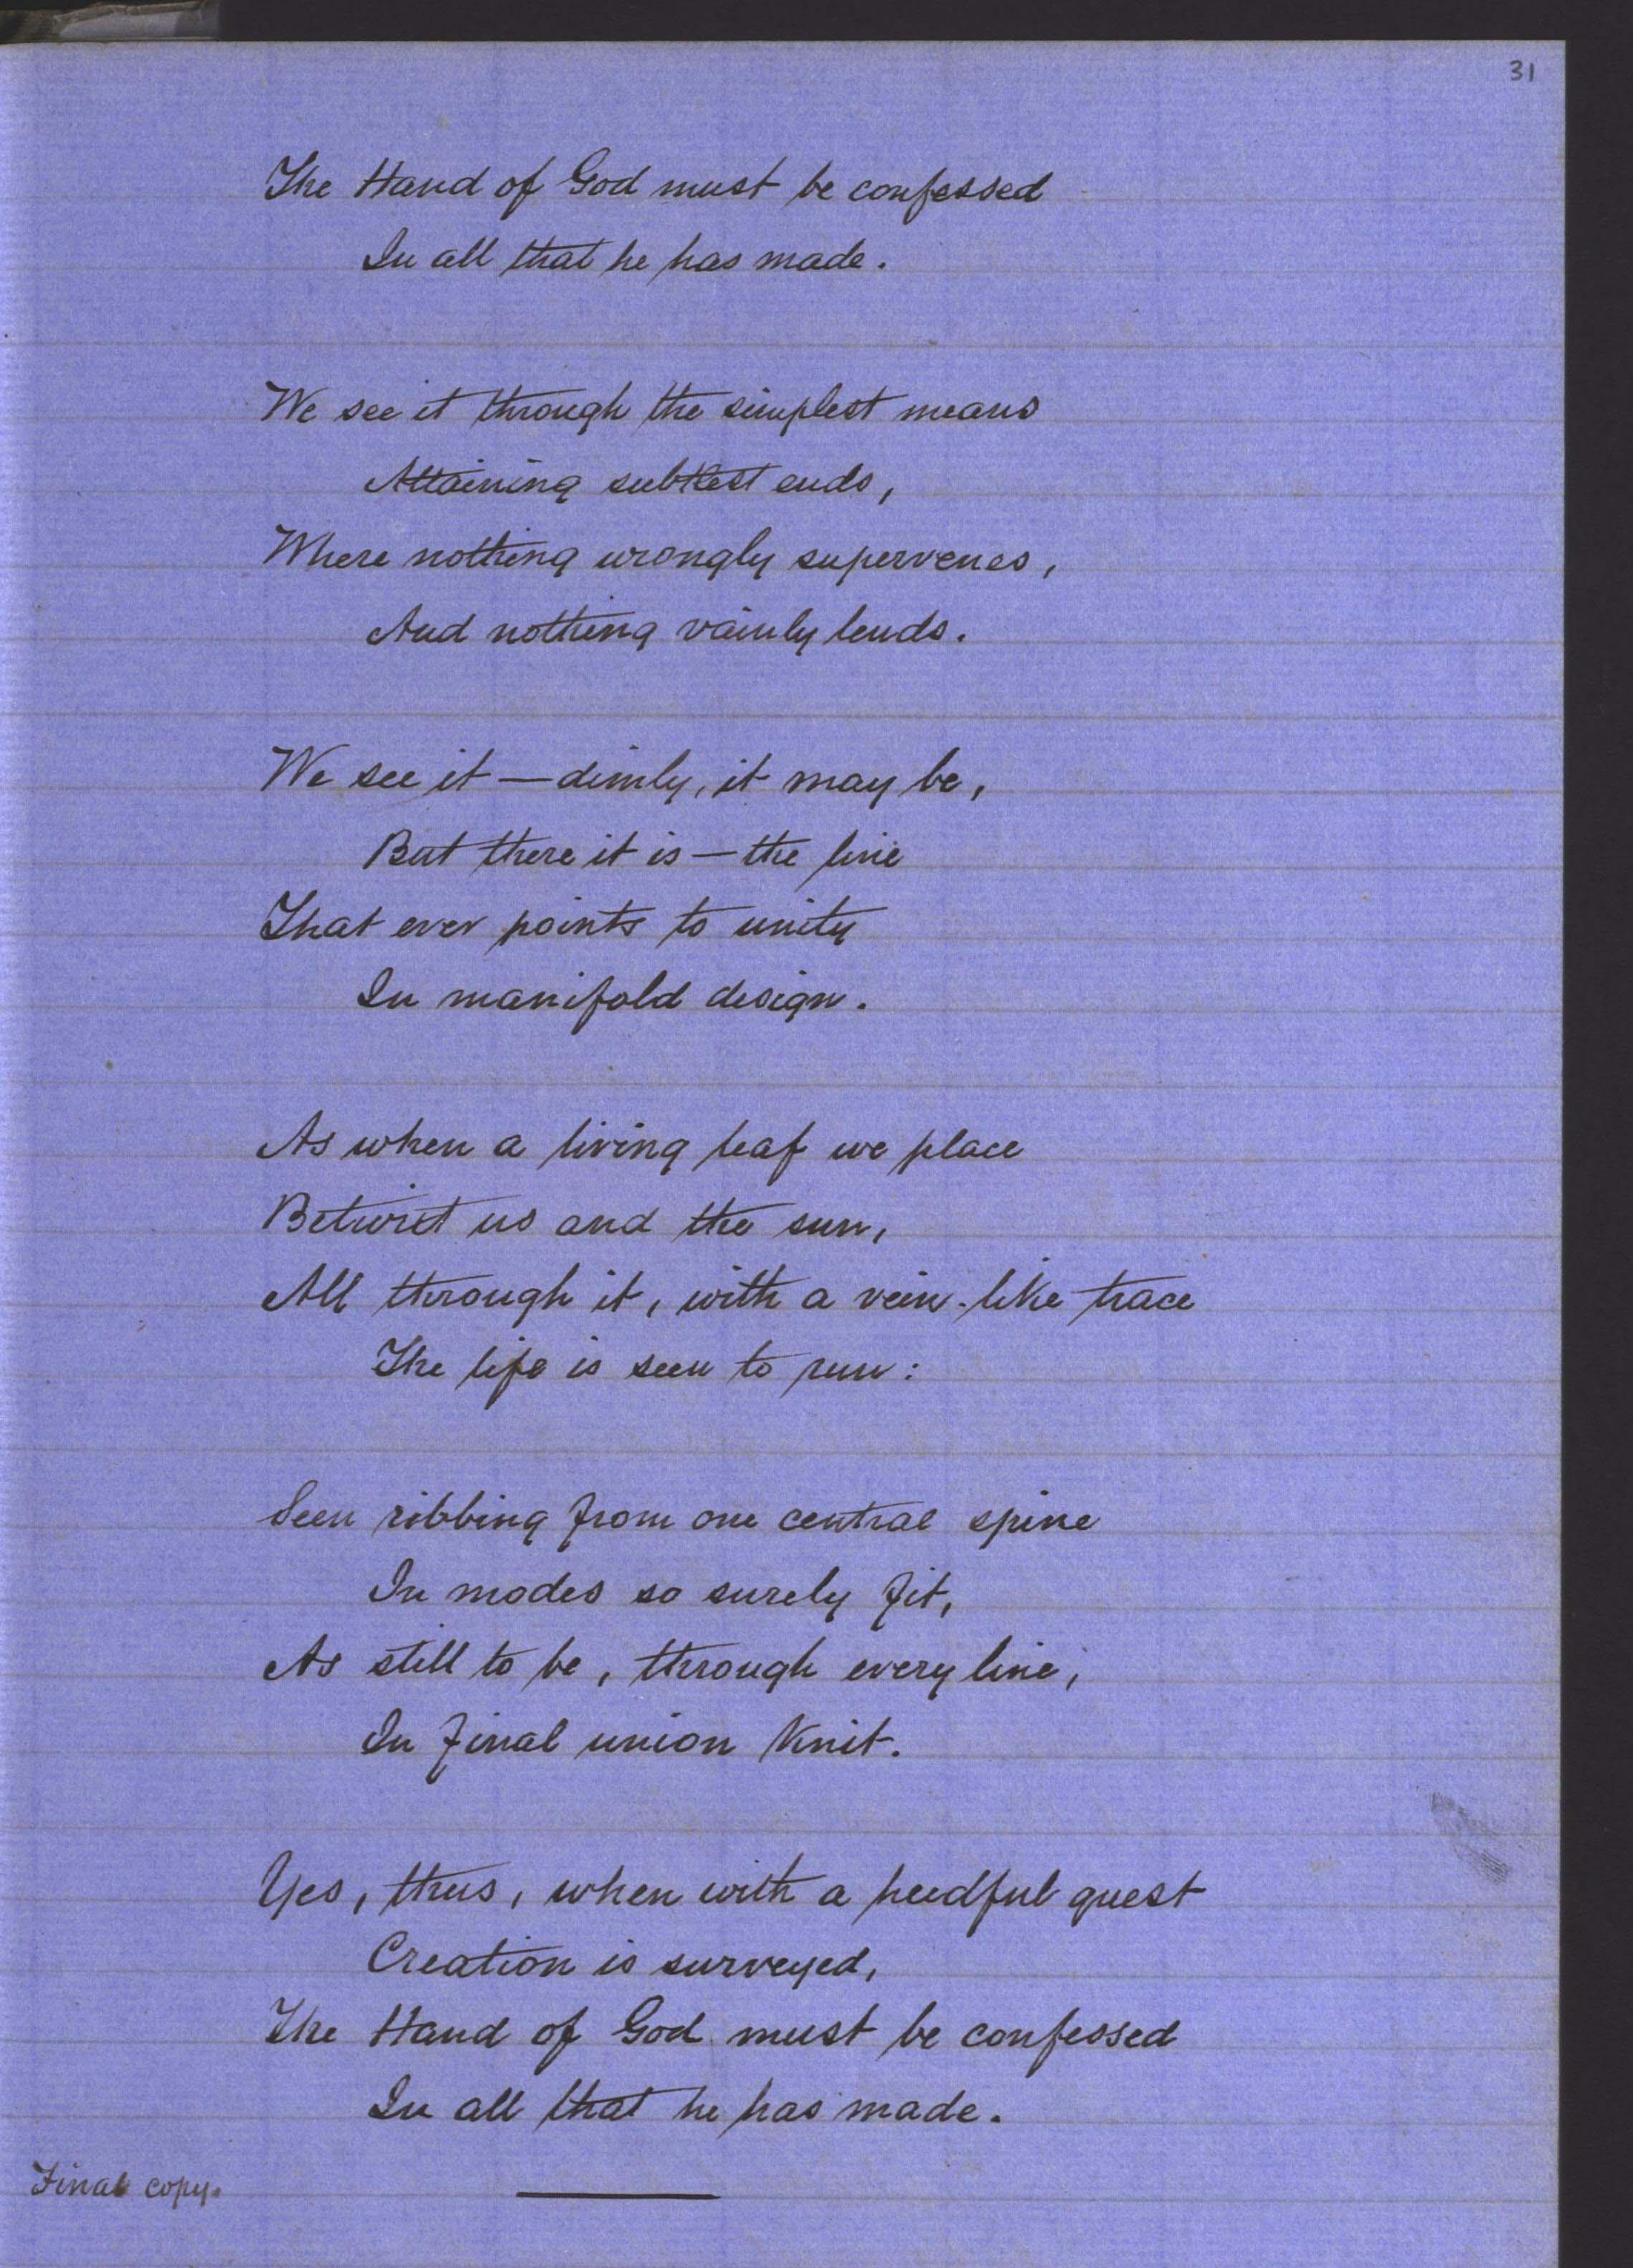 31
The Hand of God must be confessed
In all that he has made.
We see it through the simplest means
Attaining subtlest ends,
Where nothing wrongly supervenes,
And nothing vainly lends.
We see it — dimly, it may be,
But there it is — the line
That ever points to unity
In manifold design.
As when a living leaf we place
Betwixt us and the sun,
All through it, with a vein-like trace
The life is seen to run:
Seen ribbing from one central spine
In modes so surely fit,
As still to be, through every line,
In final union knit.
Yes, thus, when with a heedful quest
Creation is surveyed,
The Hand of God must be confessed
In all that he has made.
Final copy.